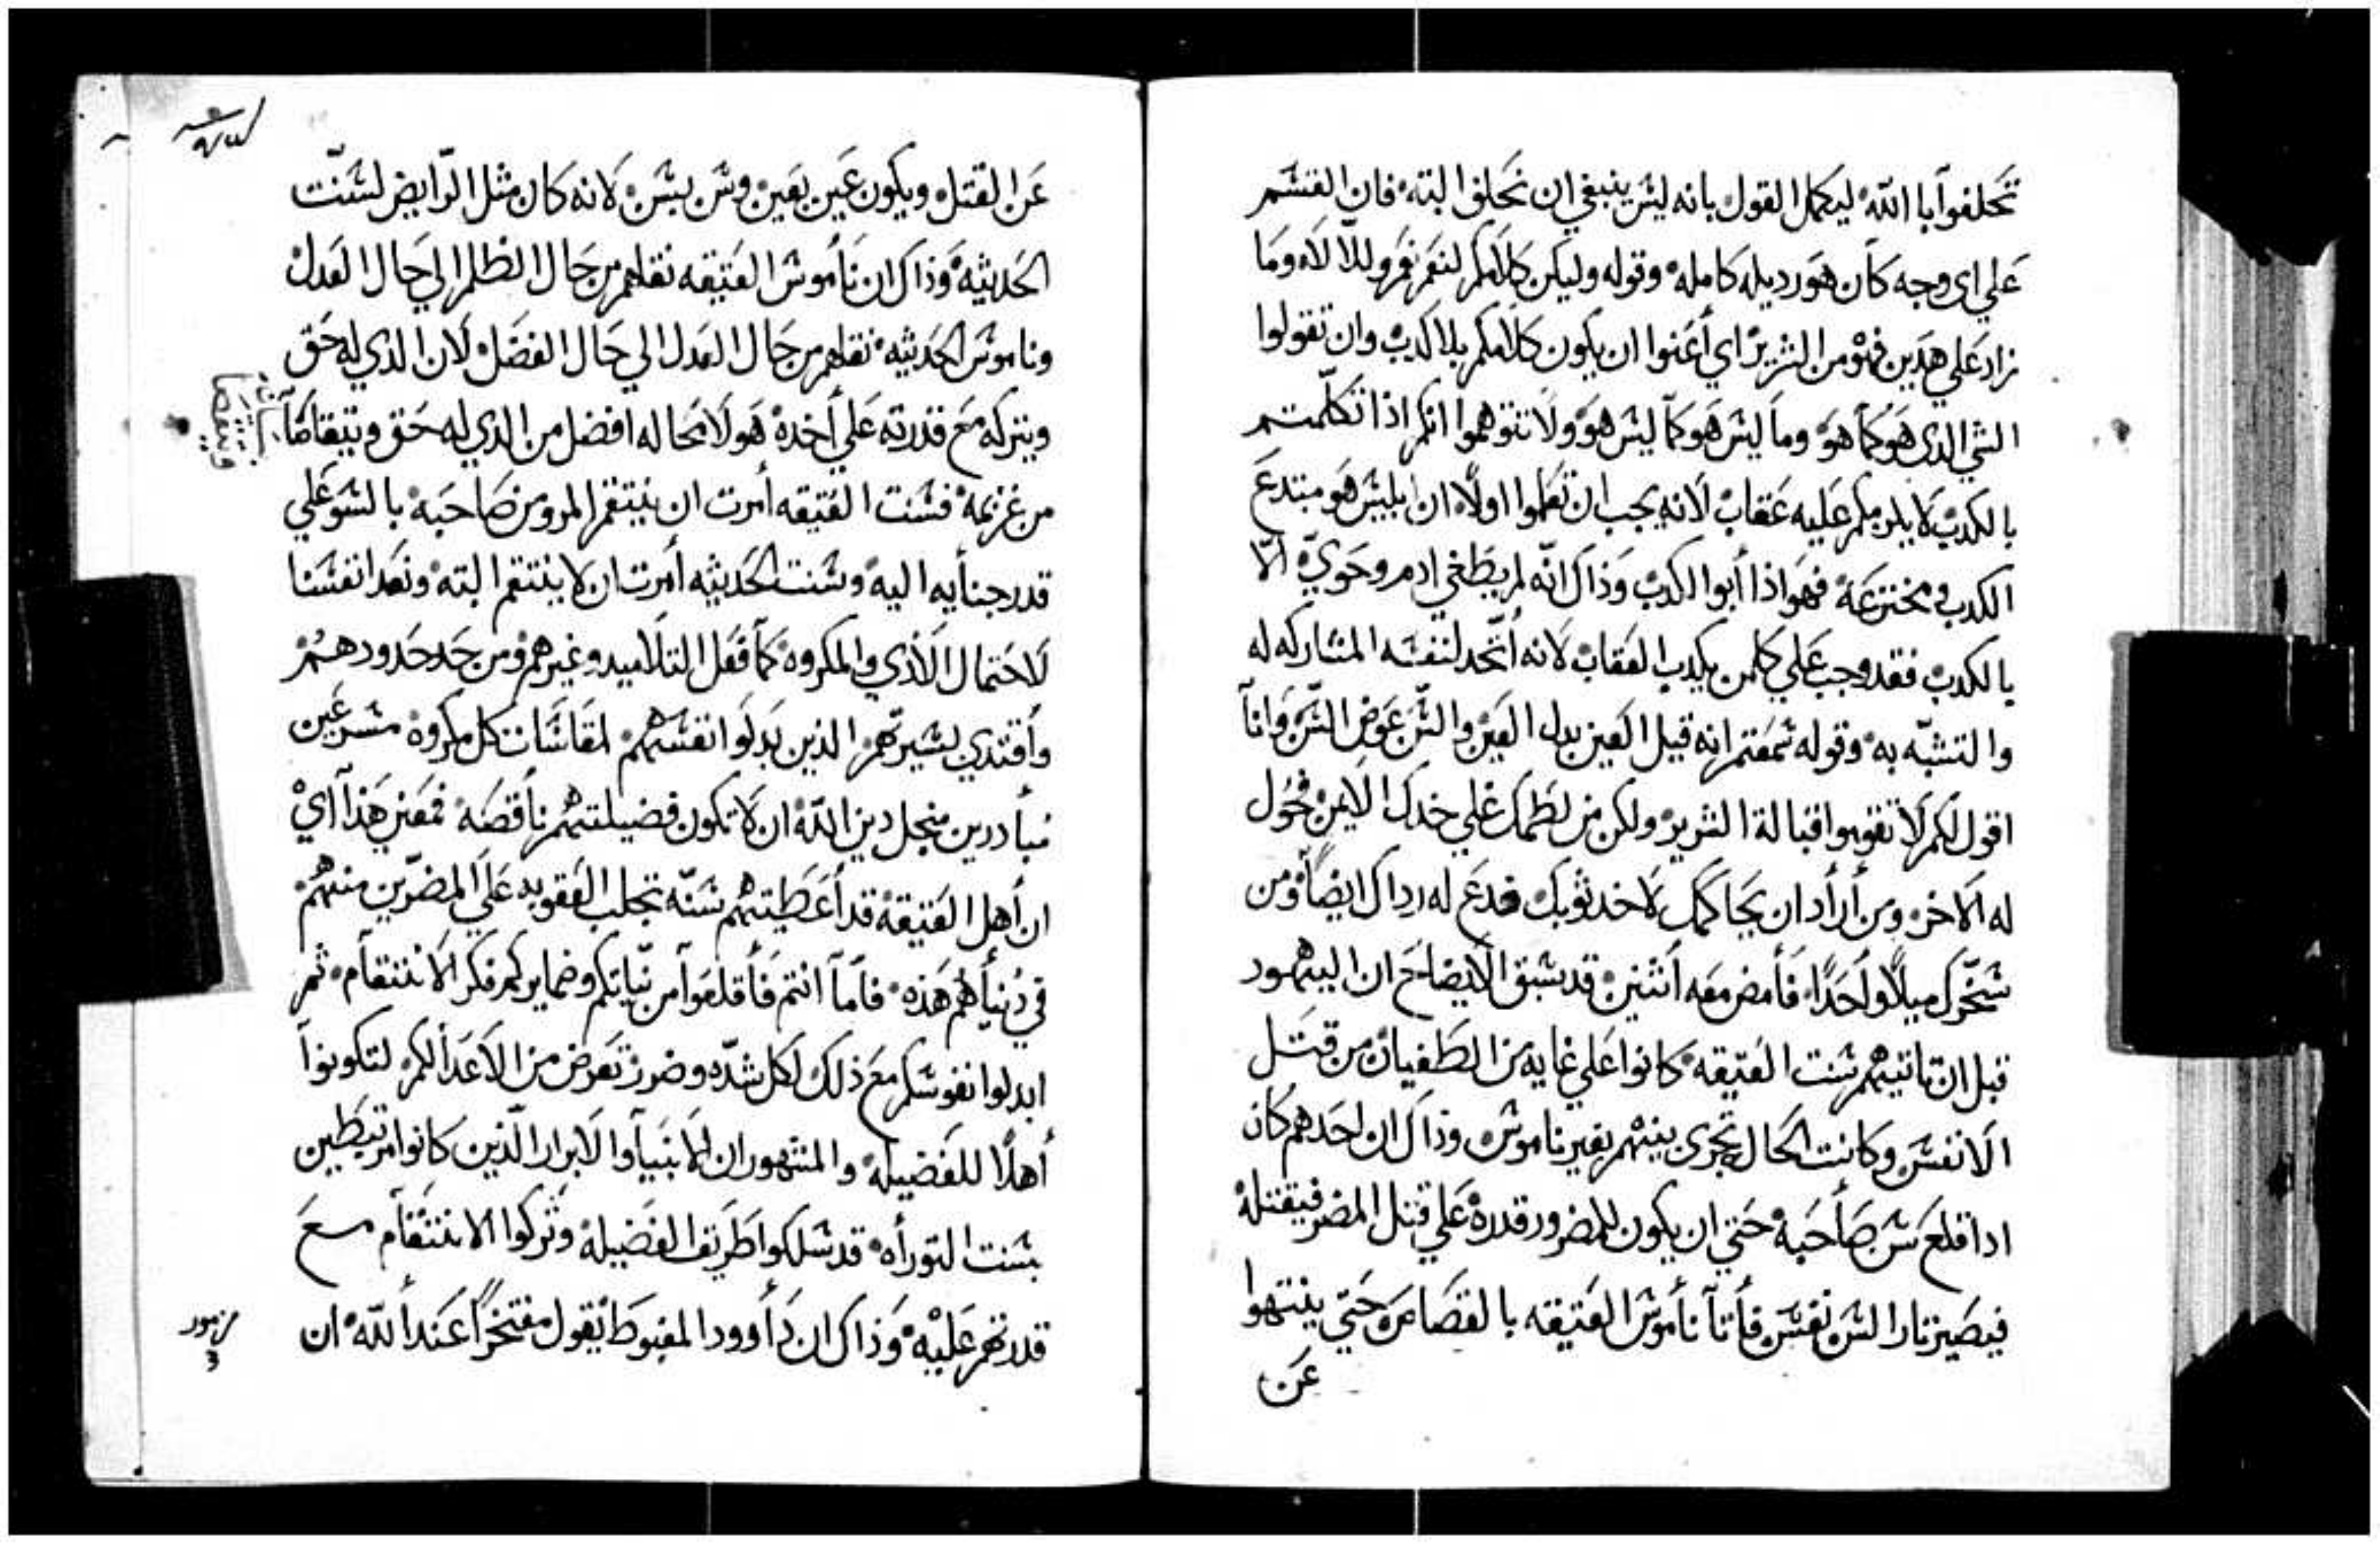 تحلفوا با الله ليكمل القول بانه ليش ينبغي ان نحلف البته فان القسم
علي اى وجه كان هو رديله كامله وقوله وليكن كلامكم لنعم نعم وللا لا وما
زاد على هدين فهو من الشرير اي أعنوا ان يكون كلامكم بلا كدب وان تقولوا
الشي الدى هو كما هو وما ليش هو كما ليش هو ولا تتوهموا انكم اذا تكلمتم
بالكدب لا يلزمكم عليه عقاب لانه يجب ان تعلموا اولا ان ابليش هو مبتدع
الكدب ومخترعه فهو اذا أبوا الكدب وذاك انه لم يطغي ادم وحوي الا
بالكدب فقد وجب علي كلمن يكدب العقاب لانه أتخد لنفسه المشاركه له
والتشبه به وقوله شمعتم انه قيل العين بدل العين والشن عوض الشن وانا
اقول لكم لا تقوموا قبالة الشرير ولكن من لطمك على خدك الايمن فحول
له الاخر ومن أراد ان يحاكمك لاخد ثوبك فدع له رداك ايضا ومن
شخرك ميلا واحدا فأمض معه أثنين قد شبق الايضاح ان اليهود
قبل ان تاتيهم شنت العتيقه كانوا علي غايه من الطغيان من قتل
الانفس وكانت الحال تجرى بينهم بغير ناموش وذاك ان احدهم كان
ادا قلع شن صاحبه حتي ان يكون للمضرور قدره علي قتل المضر فيقتله
فيصير تار الشن نفس فأتا نأموش العتيقه بالقصاص حتي ينتهوا
عن
عن القتل ويكون عين بعين وشن بشن لانه كان مثل الرايض لشنت
الحديثه وذاك ان نأموش العتيقه نقلهم من حال الظلم الي حال العدل
وناموش الحديثه نقلهم من حال العدل الي حال الفضل لان الدي له حق
ويتركه مع قدرته علي أخده هو لا محاله افضل من الدي له حق ويتقاضا
من غريمه فشنت العتيقه أمرت ان ينتقم المرو من صاحبه بالشو علي
قدر جنأيه اليه وشنت الحديثه أمرت ان لا ينتقم البته ونعد انفسنا
لاحتمال الأذي والمكروه كما فعل التلاميد وغيرهم ومن حد حدودهم
وأقتدي بشيرتهم الذين بدلوا انفسهم لمقاشات كل مكروه مسرعين
مبأدرين منجل دين الله ان لا تكون فضيلتهم ناقصه فمعني هذا أي
ان أهل العتيقه قد أعطيتهم شنه تجلب العقوبه علي المضرين منهم
في دنيأهم هذه فاما انتم فأقلعوا من نياتكم وضمايركم فكر الانتقام ثم
ابدلوا نفوشكم مع ذلك لكل شده وضرر تعرض من الاعدا لكم لتكونوا
أهلا للفضيله والمشهور ان الانبيا والابرار الذين كانوا مرتبطين
بشنت التوراه قد شلكوا طريق الفضيله وتركوا الانتقام مع
قدرتهم عليه وذاك ان دأوود المغبوط يقول مفتخرا عند الله ان
مزمور